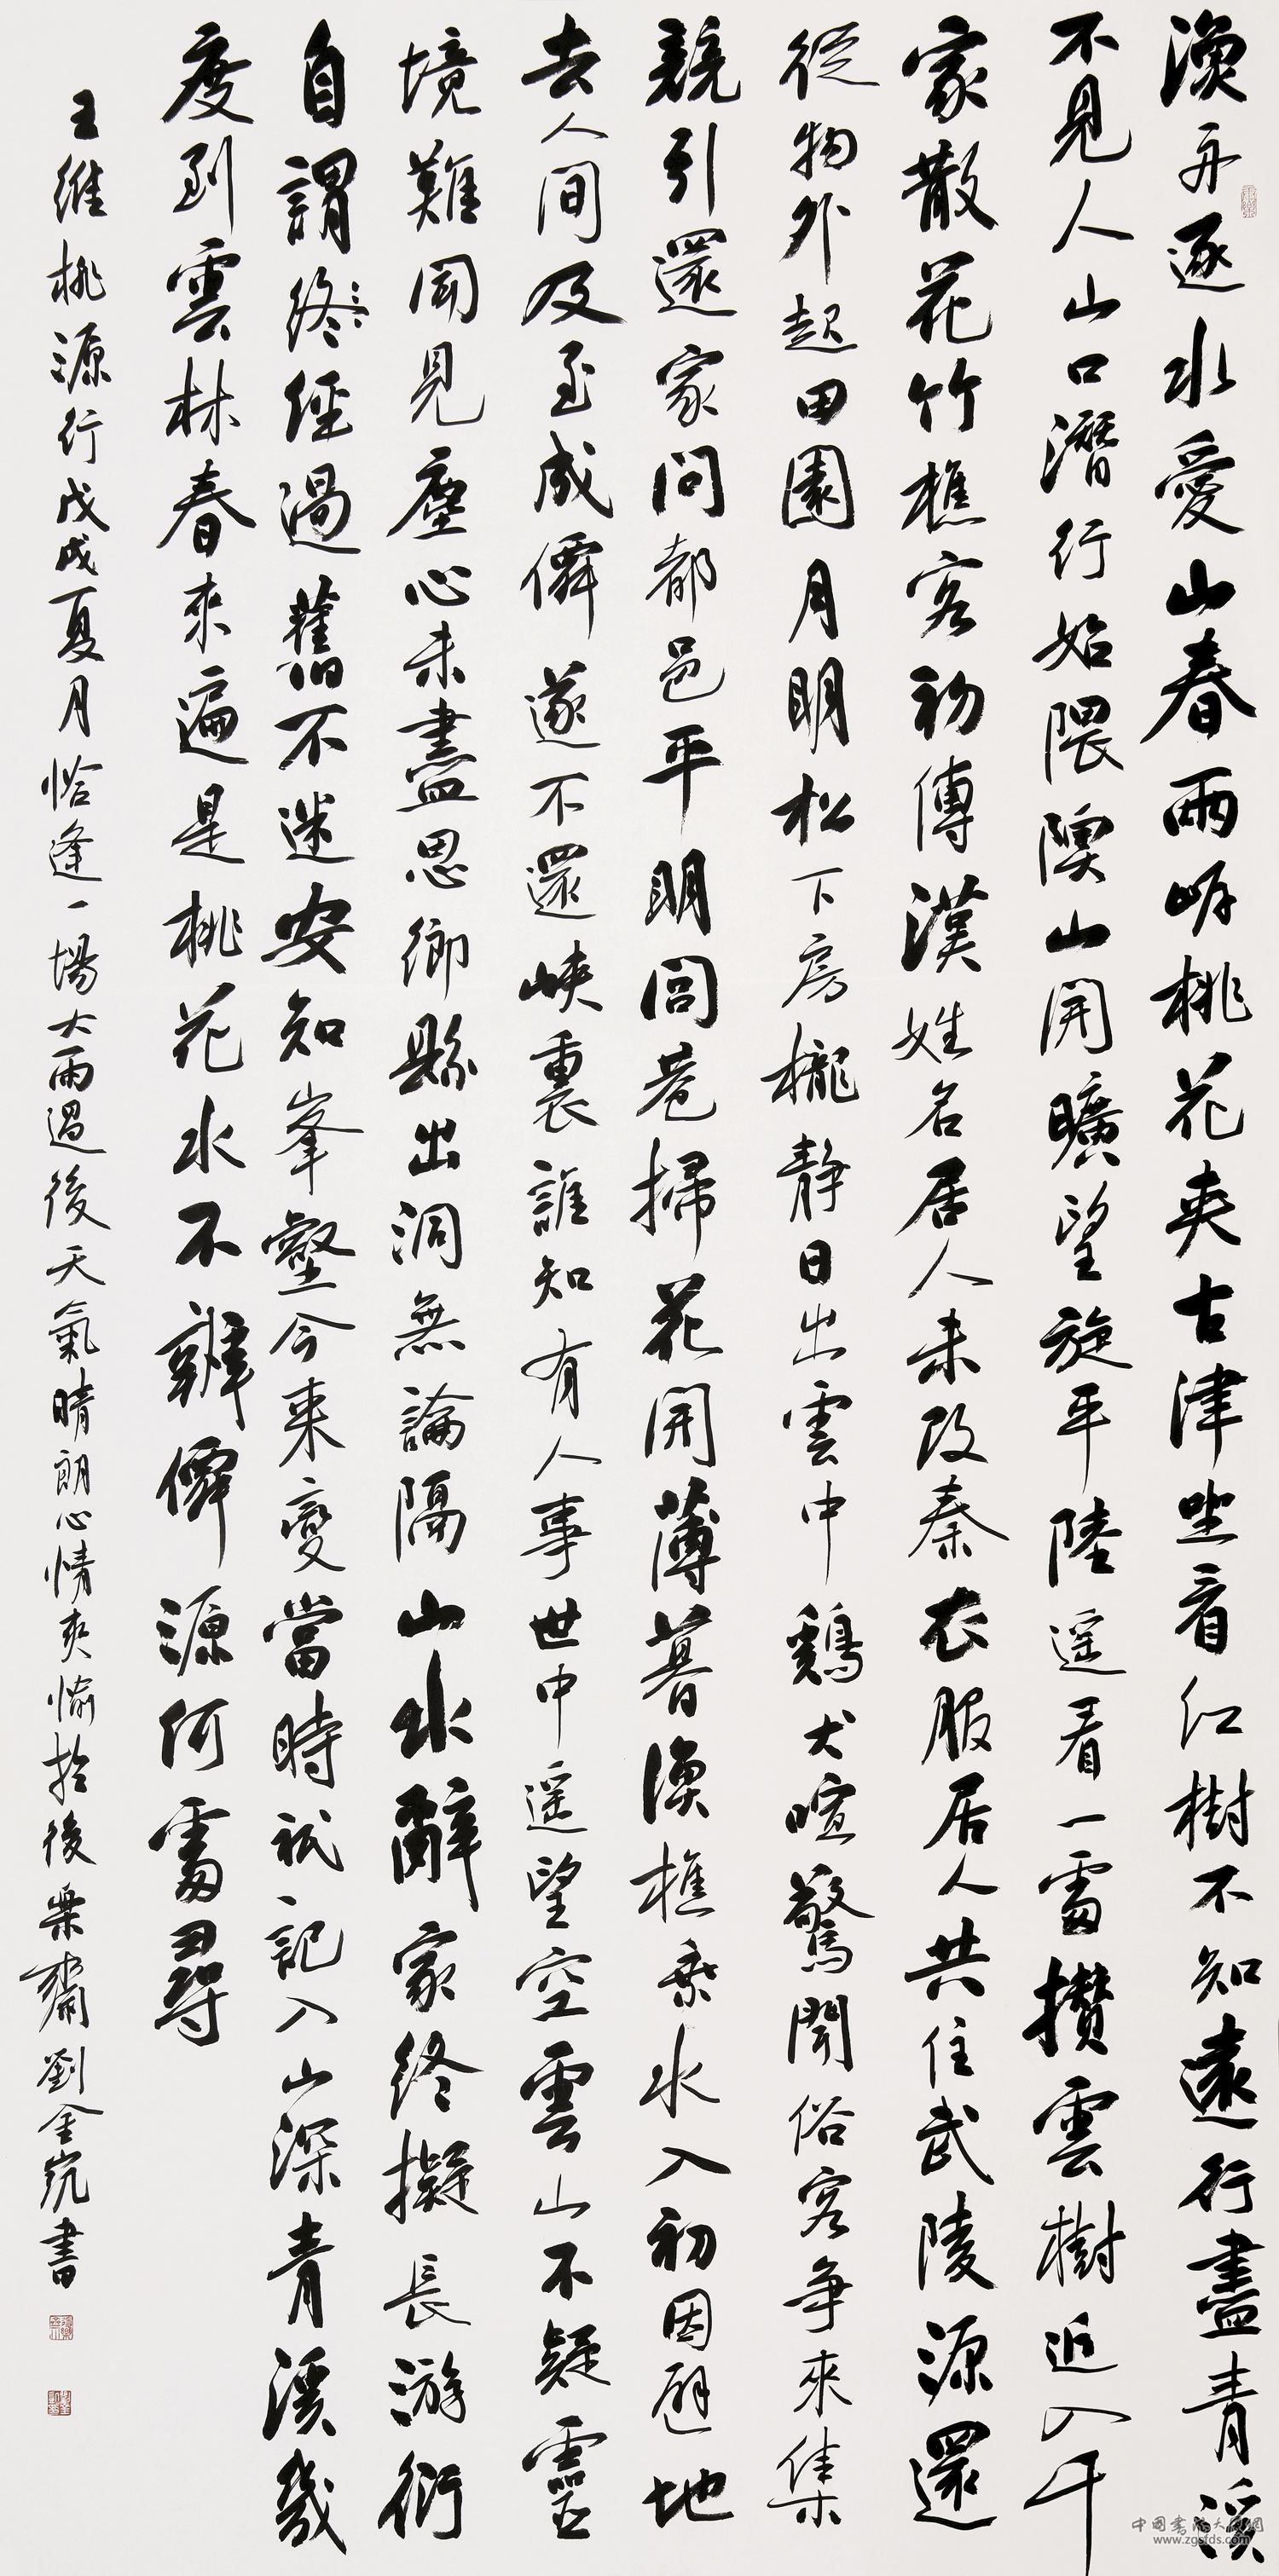 漁舟逐水愛山春兩岍桃花夾古津坐看紅樹不知遠行盡青溪
不見人山口潛行始隈隩山開曠望旋平陸遥看一處攢雲樹近入千
家散花竹樵客初傳漢姓名居人未改秦衣服居人共住武陵源還
從物外起田園月明松下房櫳靜日出雲中鷄犬喧驚聞俗客爭來集
競引還家問都邑平明閭巷掃花開薄暮漁樵乗水入初因避地
去人間及至成僊遂不還峽裏誰知有人事世中遥望空雲山不疑靈
境難聞見塵心未盡思鄉縣出洞無論隔山水辭家終擬長游衍
自謂終經過舊不迷安知峯壑今来變當時祇記入山深青溪幾
度到雲林春來遍是桃花水不辨僊源何處尋
王維桃源行戊戌夏月恰逢一場大雨過後天氣晴朗心情爽愉於後樂齋劉金凱書
www.zgsfds.com